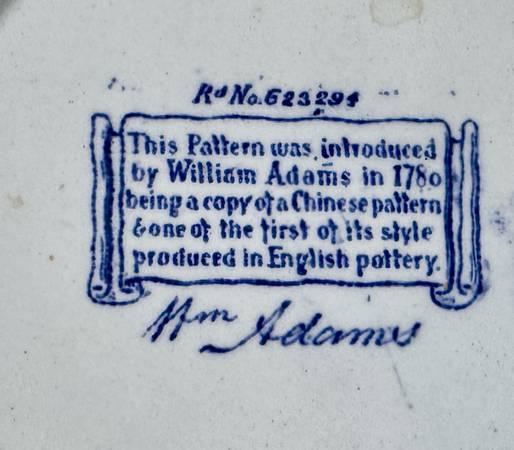 Rd No. 623294
This Pattern was introduced
by William Adams in 1780
being a copy of a Chinese pattern
& one of the first of its style
produced in English pottery.
Wm Adams